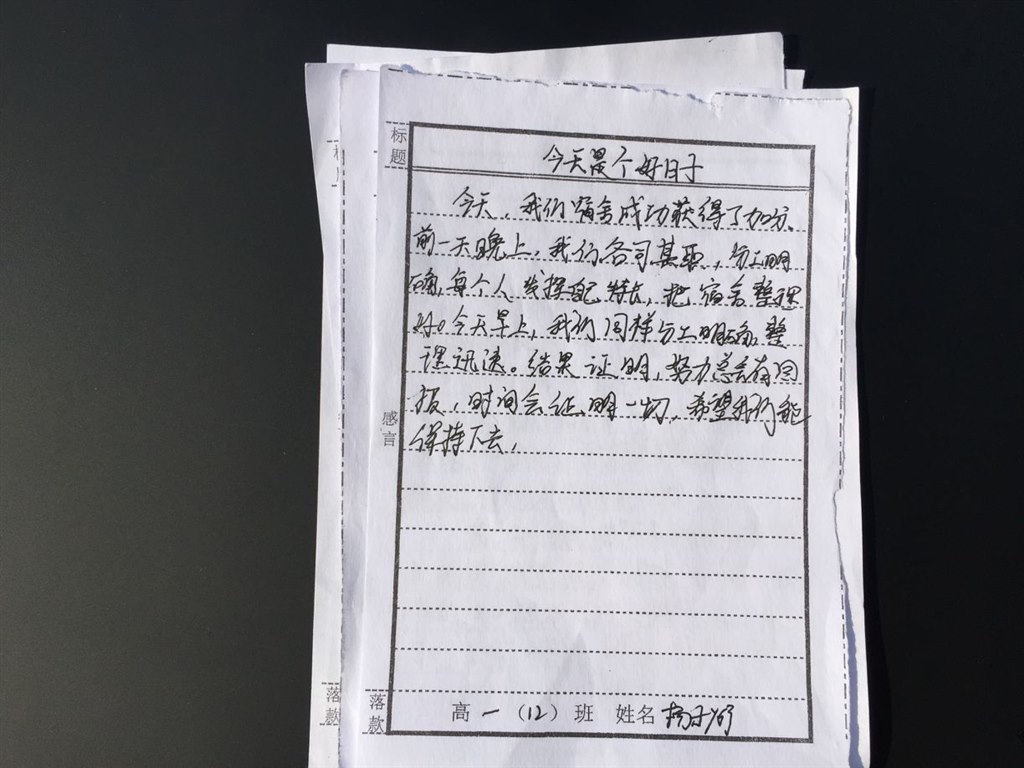 标题
今天是个好日子
今天,我们宿舍成功获得了加分。
前一天晚上,我们各司其职,分工明
确,每个人发挥特长,把宿舍整理
好。今天早上,我们同样分工明确,整
理迅速。结果证明,努力总会有回
报,时间会证明一切,希望我们能
保持下去。
感言
落款
落款
高一(12)班 姓名